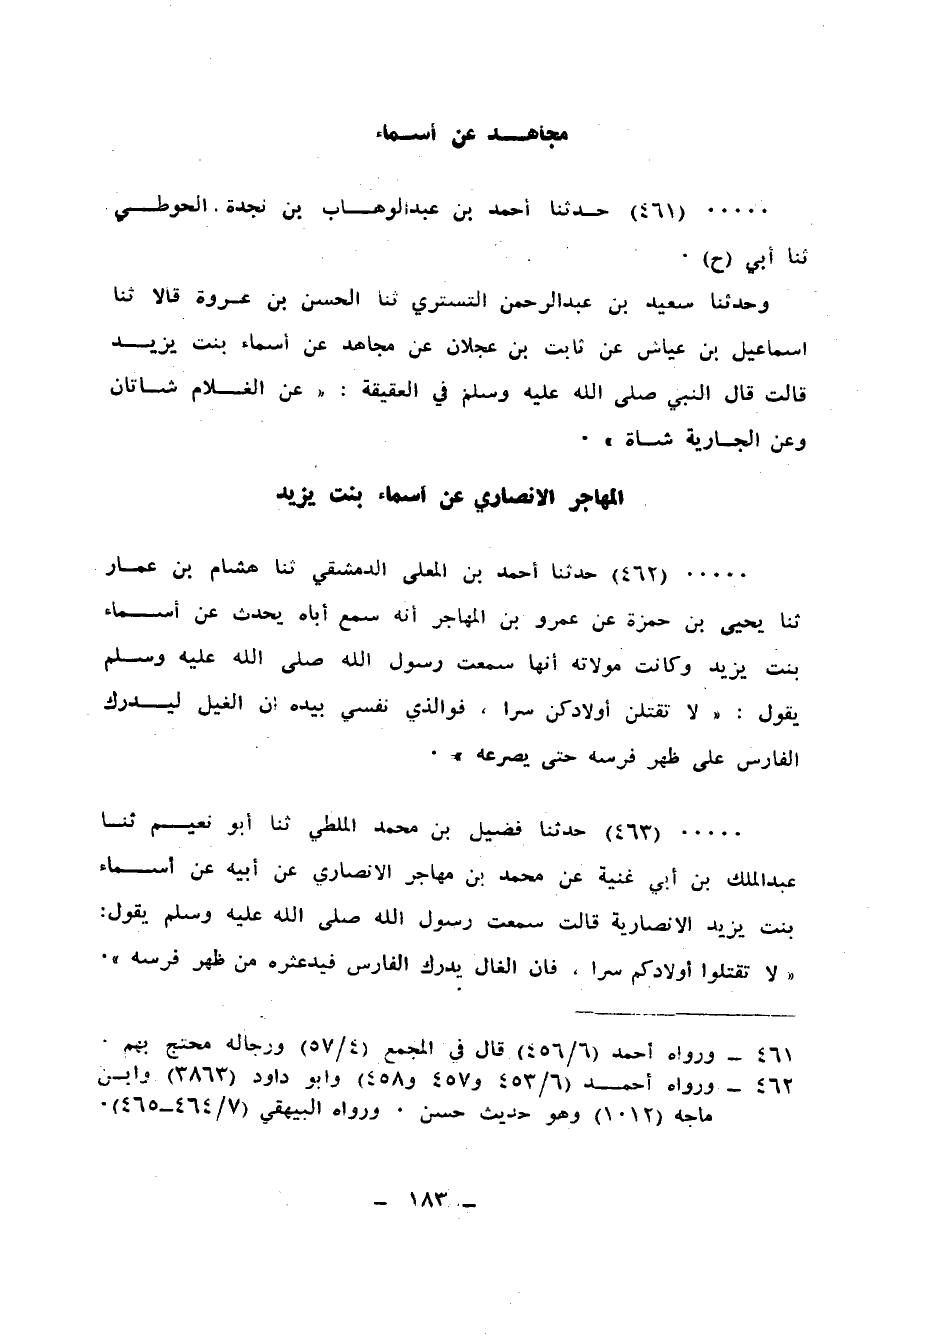 مجاهــد عن أسـماء
..... (٤٦١) حـدثنا أحمد بن عبدالوهـاب بن نجدة الحوطـي
ثنا أبي (ح) .
وحدثنا سعيد بن عبدالرحمن التستري ثنا الحسن بن عـروة قالا ثنا
اسماعيل بن عياش عن ثابت بن عجلان عن مجاهد عن أسماء بنت يزيـد
قالت قال النبي صلى الله عليه وسلم في العقيقة : « عن الغـلام شـاتان
وعن الجـارية شـاة » .
المهاجر الانصاري عن أسماء بنت يزيد
..... (٤٦٢) حدثنا أحمد بن المعلى الدمشقي ثنا هشام بن عمـار
ثنا يحيى بن حمزة عن عمرو بن المهاجر أنه سمع أباه يحدث عن أسـماء
بنت يزيد وكانت مولاته أنها سمعت رسول الله صلى الله عليه وسـلم
يقول : « لا تقتلن أولادكن سرا ، فوالذي نفسي بيده ان الغيل ليـدرك
الفارس على ظهر فرسه حتى يصرعه » .
..... (٤٦٣) حدثنا فضيل بن محمد الملطي ثنا أبو نعيـم ثنـا
عبدالملك بن أبي غنية عن محمد بن مهاجر الانصاري عن أبيه عن أسـماء
بنت يزيد الانصارية قالت سمعت رسول الله صلى الله عليه وسلم يقول:
« لا تقتلوا أولادكم سرا ، فان الغال يدرك الفارس فيدعثره من ظهر فرسه ».
٤٦١ ــ ورواه أحمد (٤٥٦/٦) قال في المجمع (٥٧/٤) ورجاله محتج بهم .
٤٦٢ ــ ورواه أحمـد (٤٥٣/٦ و٤٥٧ و٤٥٨) وابو داود (٣٨٦٣) وابـن
ماجه (١٠١٢) وهو حديث حسن . ورواه البيهقي (٤٦٤/٧ــ٤٦٥).
ــ ١٨٣ ــ